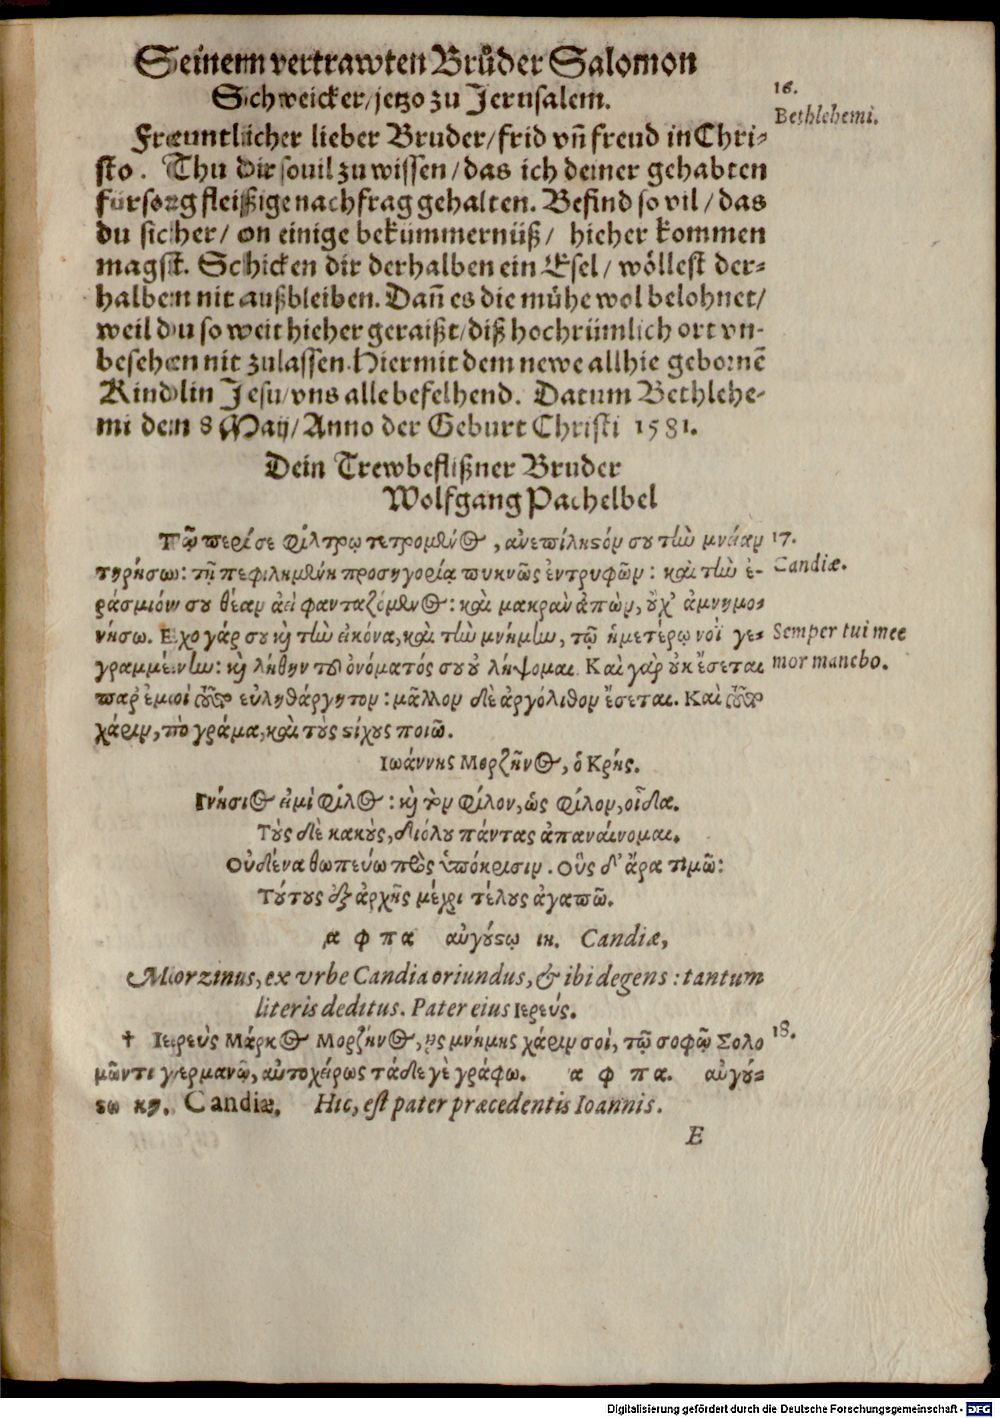 Seinem vertrawten Brůder Salomon
Schweicker/jetzo zu Jerusalem.
16.
Bethlehemi.
Freuntlicher lieber Bruder/frid vn̄ freud in Chri-
sto. Thu dir souil zu wissen/das ich deiner gehabten
fürsorg fleissige nachfrag gehalten. Befind so vil/das
du sicher/on einige bekümmernüß/ hieher kommen
magst. Schicken dir derhalben ein Esel/wöllest der-
halben nit außbleiben. Dan̄ es die mühe wol belohnet/
weil du so weit hieher geraißt/diß hochrümlich ort vn-
besehen nit zulassen. Hiermit dem newe allhie gebornē
Kindlin Jesu/vns alle befelhend. Datum Bethlehe-
mi dem 8 May/Anno der Geburt Christi 1581.
Dein Trewbeflißner Bruder
Wolfgang Pachelbel
Τῷ περί σε φίλτρῳ τετρομένος, ἀνεπίληστόν σου τὴν μνείαν
17.
τηρήσω: τῇ πεφιλημένῃ προσηγορίᾳ πυκνῶς ἐντρυφῶν: καὶ τὴν ἐ-
Candiæ.
ράσμιόν σου θέαν ἀεὶ φανταζόμενος: καὶ μακρὰν ἀπὼν, οὐχ ἀμνημο-
νήσω. Ἔχο γάρ σου καὶ τὴν εἰκόνα, καὶ τὴν μνήμην, τῷ ἡμετέρῳ νοῒ γε-
Semper tui mee
γραμμένην: καὶ λήθην τοῦ ὀνόματός σου οὐ λήψομαι. Καὶ γὰρ οὐκ ἔσεται
mor manebo.
παρ' ἐμοὶ εὐληθάργητον: μᾶλλον δὲ ἀργόλιθον ἔσεται. Καὶ
χάριν, τὸ γράμα, καὶ τοὺς στίχους ποιῶ.
Ιωάννης Μορζῆνος, ὁ Κρής.
Γνήσιος εἰμὶ φίλος: καὶ τὸν φίλον, ὡς φίλον, οἶδα.
Τοὺς δὲ κακοὺς, διόλου πάντας ἀπαναίνομαι.
Οὐδένα θωπεύω πρὸς ὑπόκρισιν. Οὓς δ' ἄρα τιμῶ:
Τούτους ἐξ ἀρχῆς μέχρι τέλους ἀγαπῶ.
͵α φ π α αὐγούστῳ ιη. Candiæ,
Morzinus, ex vrbe Candia oriundus, & ibi degens: tantum
literis deditus. Pater eius Ιερεύς.
† Ιερεὺς Μάρκος Μορζῆνος, εἰς μνήμης χάριν σοὶ, τῷ σοφῷ Σολο
18.
μῶντι γερμανῷ, αὐτοχείρως τάδε γὲ γράφω. α φ π α. αὐγού-
στω κη. Candiæ. Hic, est pater præcedentis Ioannis.
E
Digitalisierung gefördert durch die Deutsche Forschungsgemeinschaft - DFG